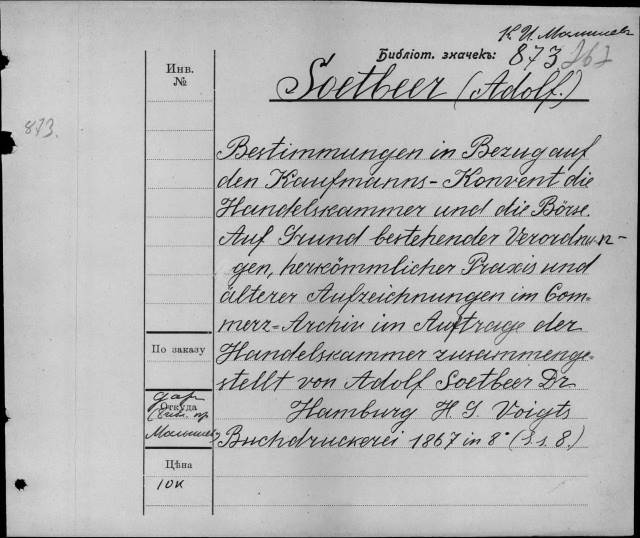 К. И. Малышев
Библіот. значекъ: 873 262
Инв.
№
Soetbeer (Adolf.)
873.
Bestimmungen in Bezug auf
den Kaufmanns-Konvent die
Handelskammer und die Börse.
Auf Grund bestehender Verordnun-
gen, herkömmlicher Praxis und
älterer Aufzeichnungen im Com-
merz-Archiv im Auftrage der
Handelskammer zusammenge-
stellt von Adolf Soetbeer Dr
Hamburg H. G. Voigts
Buchdruckerei 1867 in 8° (S. s. 8.)
По заказу
дар
Откуда
Малышев
Цѣна
10к